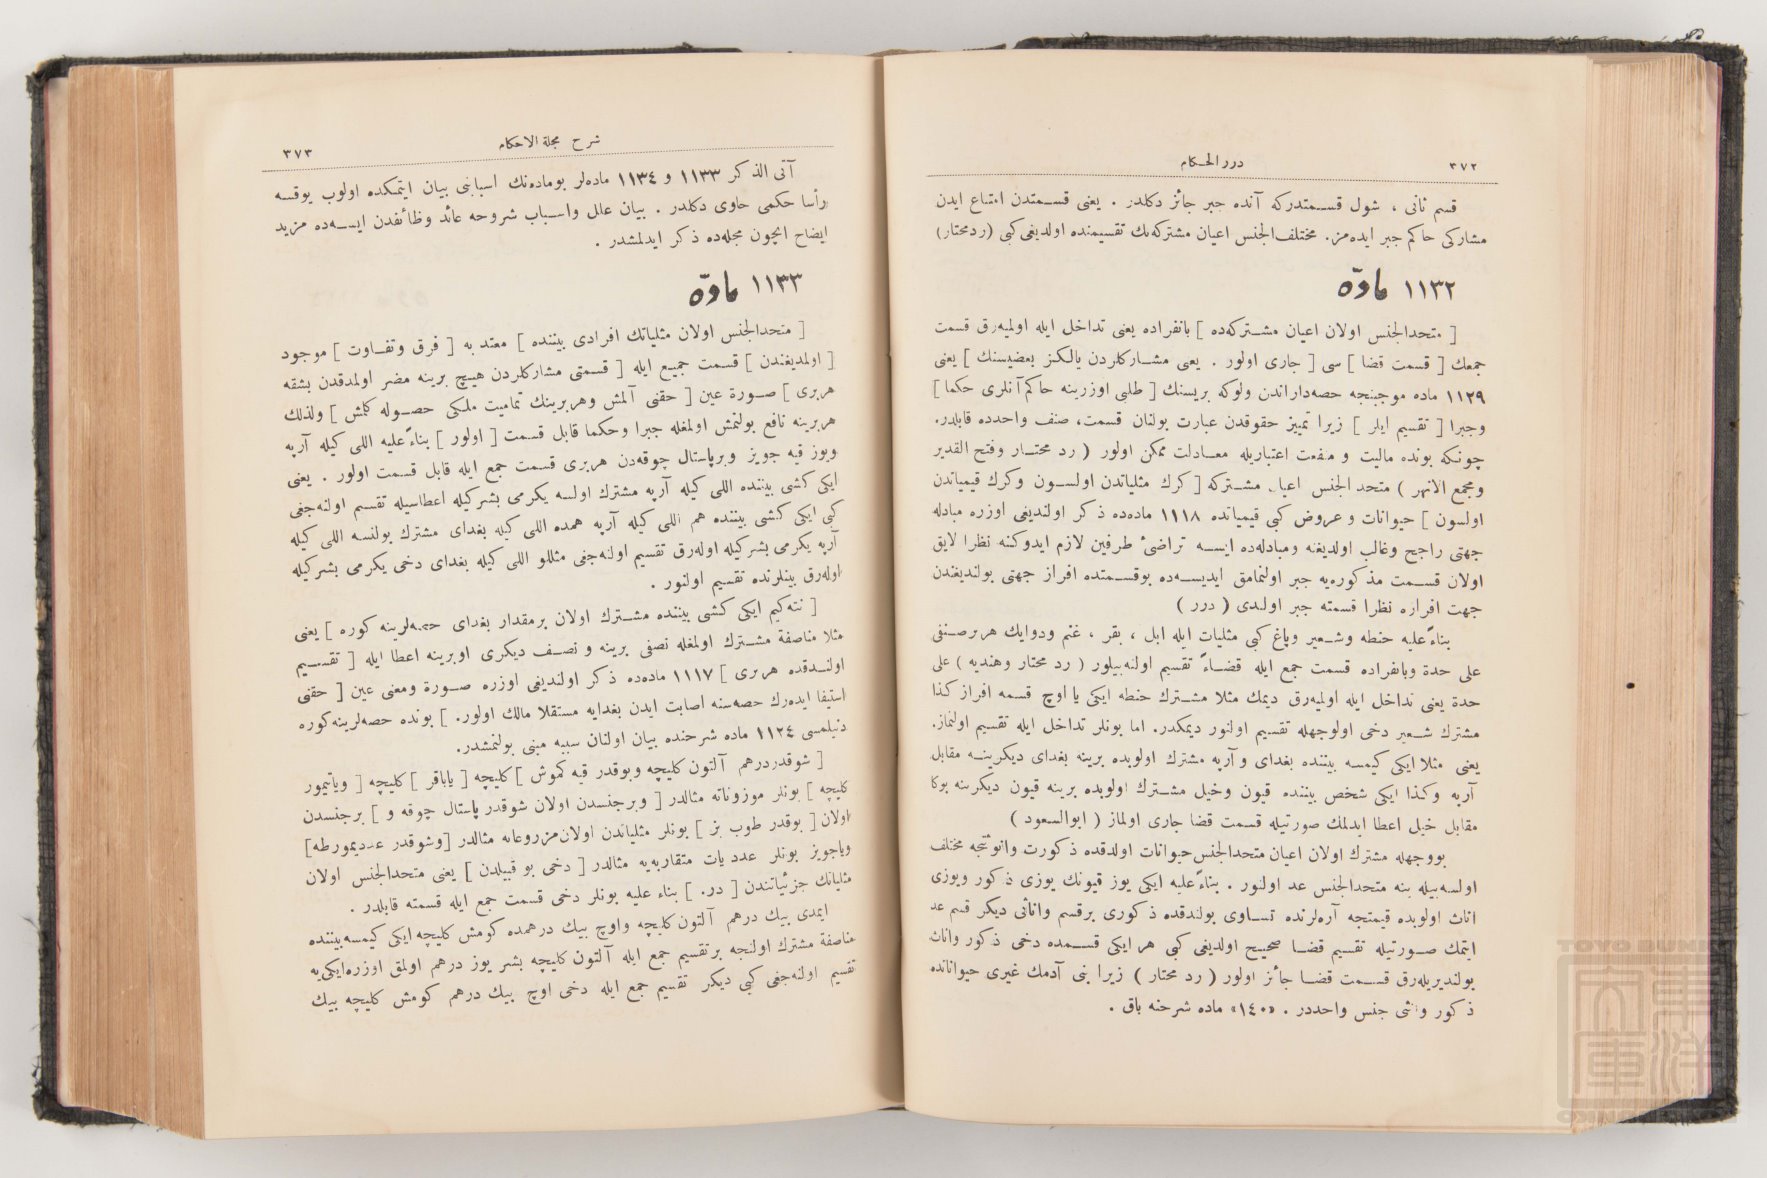 ٣٧٢
درر الحكام
قسم ثانى ، شول قسمتدركه آنده جبر جائز دكلدر . يعنى قسمتدن امتناع ايدن
مشاركى حاكم جبر ايده‌مز. مختلف‌الجنس اعيان مشتركه‌نك تقسيمنده اولديغى كبى (ردمحتار)
١١٣٢ مادّه
[ متحدالجنس اولان اعيان مشتركه‌ده ] بانفراده يعنى تداخل ايله اولميه‌رق قسمت
جمعك [ قسمت قضا ] سى [ جارى اولور . يعنى مشاركلردن يالكز بعضيسنك ] يعنى
١١٢٩ ماده موجبنجه حصه‌داراندن ولوكه بريسنك [ طلبى اوزرينه حاكم آنلرى حكما ]
وجبرا [ تقسيم ايلر ] زيرا تمييز حقوقدن عبارت بولنان قسمت، صنف واحدده قابلدر.
چونكه بونده ماليت و منفعت اعتباريله معادلت ممكن اولور ( رد محتار وفتح القدير
ومجمع الانهر ) متحد الجنس اعيان مشتركه [ كرك مثلياتدن اولسون وكرك قيمياتدن
اولسون ] حيوانات و عروض كبى قيمياتده ١١١٨ ماده‌ده ذكر اولنديغى اوزره مبادله
جهتى راجح وغالب اولديغنه ومبادله‌ده ايسه تراضئ طرفين لازم ايدوكنه نظرا لايق
اولان قسمت مذكوره‌يه جبر اولنمامق ايديسه‌ده بوقسمتده افراز جهتى بولنديغندن
جهت افرازه نظرا قسمته جبر اولندى ( درر )
بناءً عليه حنطه وشعير وياغ كبى مثليات ايله ابل ، بقر ، غنم ودوابك هربرصنفى
على حدة وبانفراده قسمت جمع ايله قضاءً تقسيم اولنه‌بيلور ( رد محتار وهنديه ) على
حدة يعنى تداخل ايله اولميه‌رق ديمك مثلا مشترك حنطه ايكى يا اوچ قسمه افراز كذا
مشترك شعير دخى اولوجهله تقسيم اولنور ديمكدر. اما بونلر تداخل ايله تقسيم اولنماز.
يعنى مثلا ايكى كيمسه بيننده بغداى و آرپه مشترك اولوبده برينه بغداى ديكرينه مقابل
آرپه وكذا ايكى شخص بيننده قيون وخيل مشترك اولوبده برينه قيون ديكرينه بوكا
مقابل خيل اعطا ايدلمك صورتيله قسمت قضا جارى اولماز ( ابوالسعود )
بووجهله مشترك اولان اعيان متحدالجنس حيوانات اولدقده ذكورت وانوثتجه مختلف
اولسه‌بيله ينه متحدالجنس عد اولنور . بناءً عليه ايكى يوز قيونك يوزى ذكور ويوزى
اناث اولوبده قيمتجه آره‌لرنده تساوى بولندقده ذكورى برقسم واناثى ديكر قسم عد
ايتمك صورتيله تقسيم قضا صحيح اولديغى كبى هر ايكى قسمده دخى ذكور واناث
بولنديريله‌رق قسمت قضا جائز اولور ( رد محتار ) زيرا بنى آدمك غيرى حيواناتده
ذكور وانثى جنس واحددر . «١٤٠» ماده شرحنه باق .
شرح مجلة الاحكام
٣٧٣
آتى الذكر ١١٣٣ و ١١٣٤ ماده‌لر بوماده‌نك اسبابنى بيان ايتمكده اولوب يوقسه
رأسا حكمى حاوى دكلدر . بيان علل واسباب شروحه عائد وظائفدن ايسه‌ده مزيد
ايضاح ايچون مجله‌ده ذكر ايدلمشدر .
١١٣٣ مادّه
[ متحدالجنس اولان مثلياتك افرادى بيننده ] معتد به [ فرق وتفاوت ] موجود
[ اولمديغندن ] قسمت جميع ايله [ قسمتى مشاركلردن هيچ برينه مضر اولمدقدن بشقه
هربرى ] صورة عين [ حقنى آلمش وهربرينك تماميت ملكى حصوله كلمش ] ولذلك
هربرينه نافع بولنمش اولمغله جبرا وحكما قابل قسمت [ اولور ] بناءً عليه اللى كيله آرپه
ويوز قيه جويز وبرپاستال چوقه‌دن هربرى قسمت جمع ايله قابل قسمت اولور . يعنى
ايكى كشى بيننده اللى كيله آرپه مشترك اولسه يكرمى بشر كيله اعطاسيله تقسيم اولنه‌جغى
كبى ايكى كشى بيننده هم اللى كيله آرپه همده اللى كيله بغداى مشترك بولنسه اللى كيله
آرپه يكرمى بشر كيله اوله‌رق تقسيم اولنه‌جغى مثللو اللى كيله بغداى دخى يكرمى بشر كيله
اوله‌رق بينلرنده تقسيم اولنور .
[ نته‌كيم ايكى كشى بيننده مشترك اولان برمقدار بغداى حصه‌لرينه كوره ] يعنى
مثلا مناصفة مشترك اولمغله نصفى برينه و نصف ديكرى اوبرينه اعطا ايله [ تقسيم
اولندقده هربرى ] ١١١٧ ماده‌ده ذكر اولنديغى اوزره صورة ومعنى عين [ حقنى
استيفا ايده‌رك حصه‌سنه اصابت ايدن بغدايه مستقلا مالك اولور. ] بونده حصه‌لرينه كوره
دنيلمسى ١١٢٤ ماده شرحنده بيان اولنان سببه مبنى بولنمشدر.
[ شوقدردرهم آلتون كليچه وبوقدر قيه كموش ] كليچه [ ياباقر ] كليچه [ وياتيمور
كليچه ] بونلر موزوناته مثالدر [ وبرجنسدن اولان شوقدر پاستال چوقه و ] برجنسدن
اولان [ بوقدر طوب بز ] بونلر مثلياتدن اولان مزروعاته مثالدر [وشوقدر عدديمورطه]
وياجويز بونلر عدديات متقاربه‌يه مثالدر [ دخى بو قبيلدن ] يعنى متحدالجنس اولان
مثلياتك جزئياتندن [ در. ] بناء عليه بونلر دخى قسمت جمع ايله قسمته قابلدر .
ايمدى بيك درهم آلتون كليچه واوچ بيك درهمده كومش كليچه ايكى كيمسه بيننده
مناصفة مشترك اولنجه برتقسيم جمع ايله آلتون كليچه بشر يوز درهم اولمق اوزره‌ايكى‌يه
تقسيم اولنه‌جغى كبى ديكر تقسيم جمع ايله دخى اوچ بيك درهم كومش كليچه بيك
TOYO BUNKO
東洋文庫